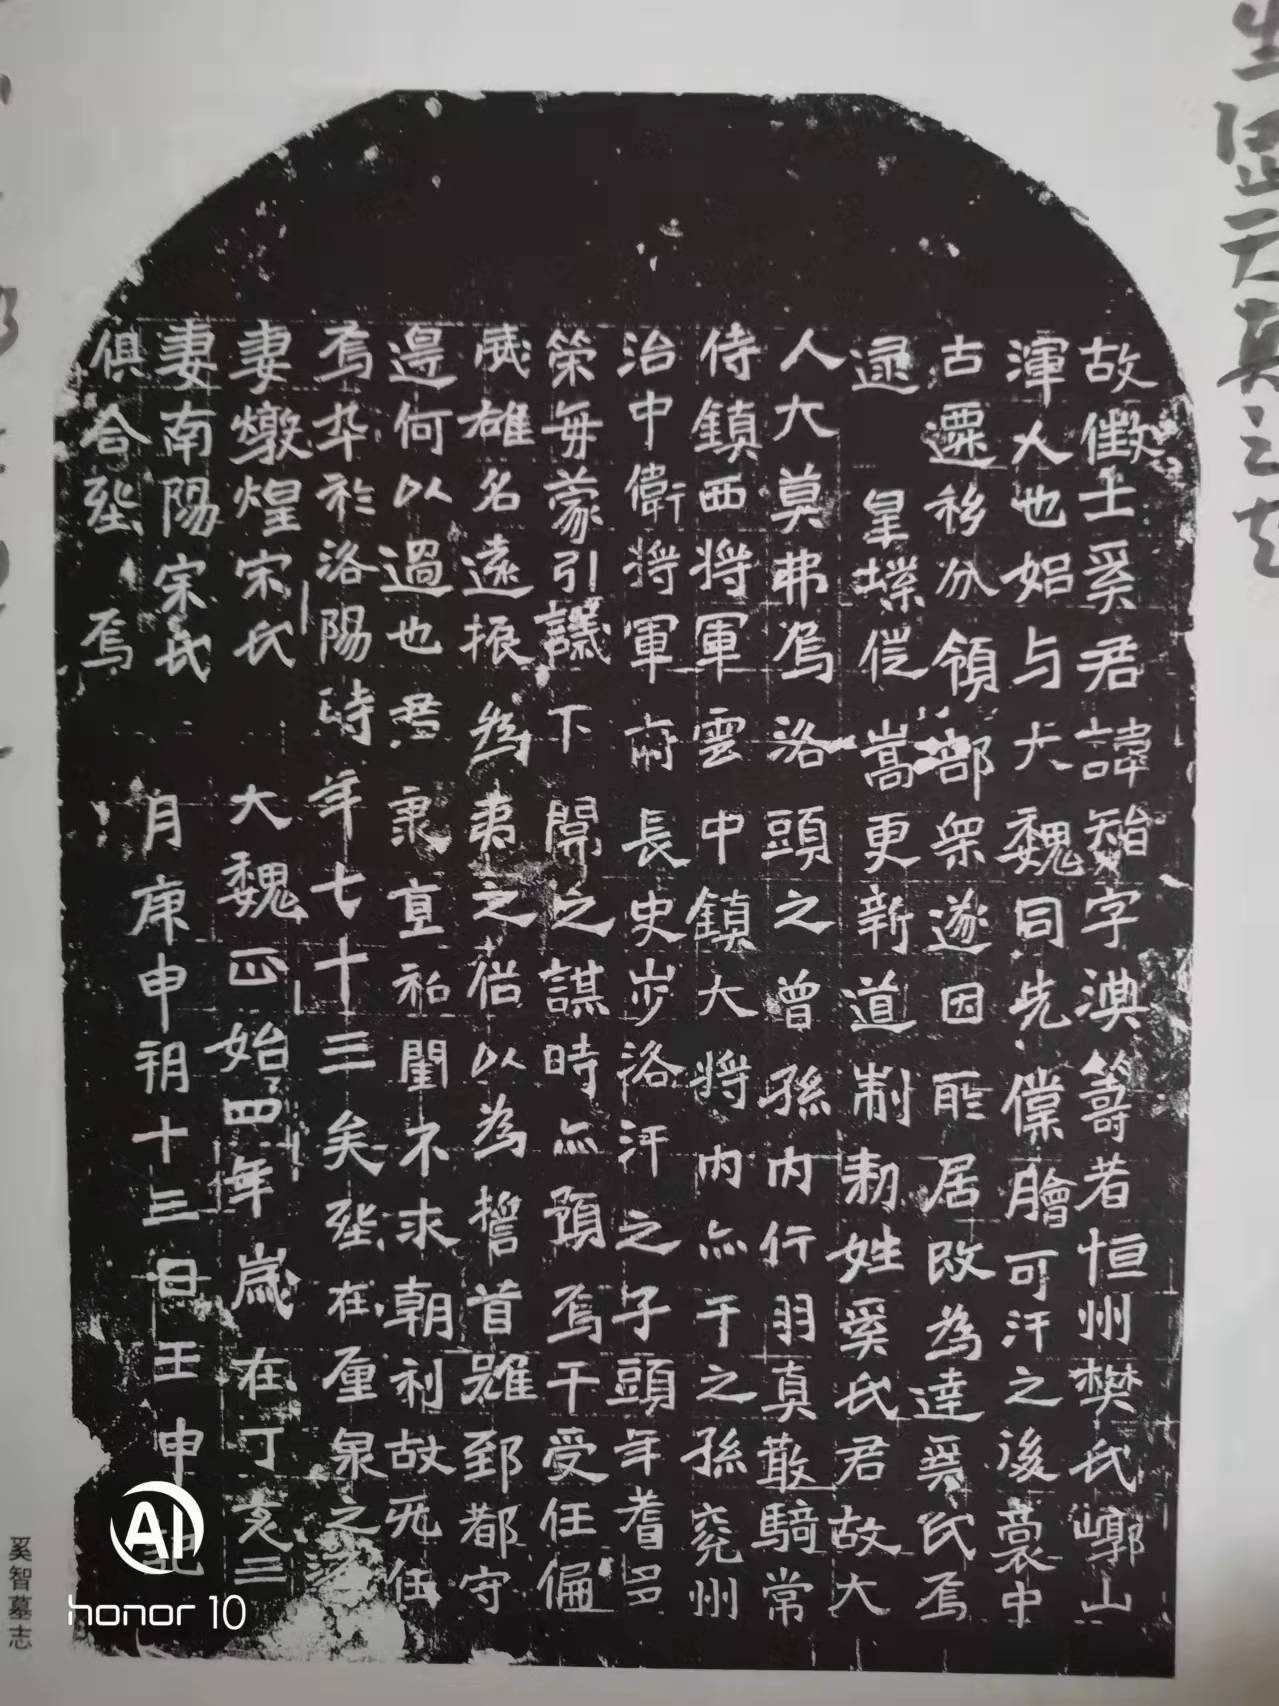 故徵士奚君諱智字淟籌者恒州樊氏嶂山
渾人也始与大魏同先僕膾可汗之後裔中
古遷移分領部衆遂因所居改為達奚氏焉
逮 皇業徙嵩更新道制勑姓奚氏君故大
人大莫弗烏洛頭之曾孫內行羽真散騎常
侍鎮西將軍雲中鎮大將內亦干之孫兖州
治中衛將軍府長史步洛汗之子頭年耆多
策每蒙引議下關之謀時亦預焉干受任偏
威雄名遠振為夷之俗以為誓首雖郅都守
邊何以過也君秉直私閨不求朝利故无任
焉卒於洛陽時年七十三矣葬在廛泉之
妻燉煌宋氏 大魏正始四年歲在丁亥三
妻南陽宗氏 月庚申朔十三日壬申記
俱合葬焉
奚智墓志
AI
honor 10